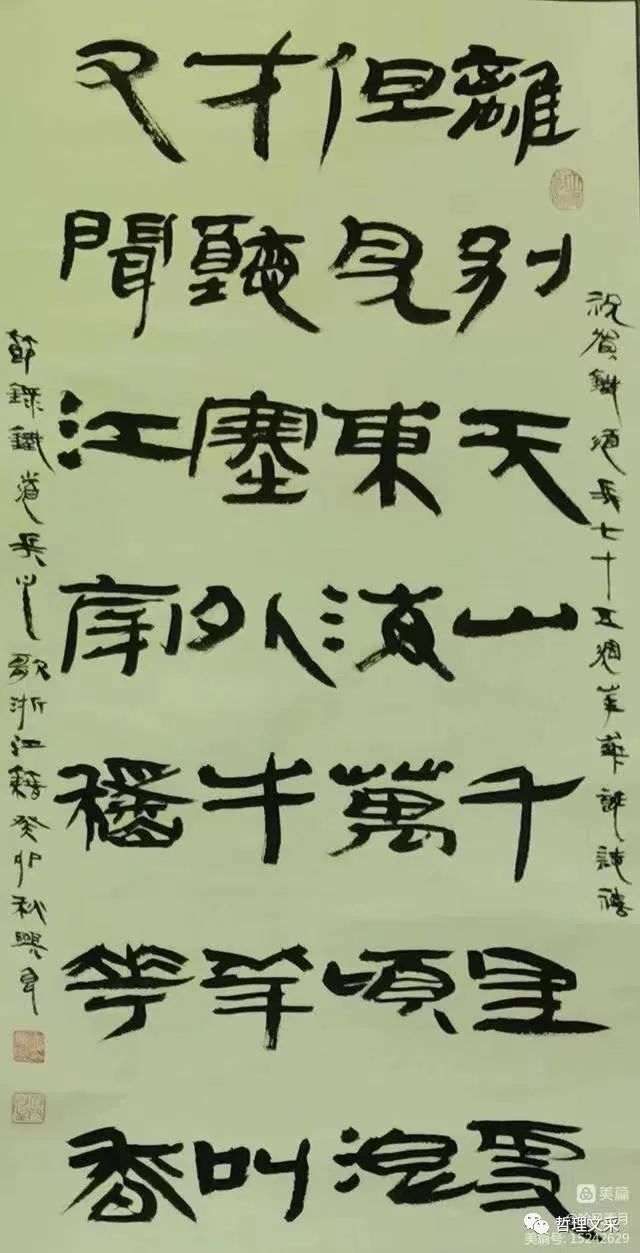 祝賀鐵道兵七十五週年華誕
離別天山千里雪
但見東海萬頃浪
才聽塞外牛羊叫
又聞江南稻花香
節錄鐵道兵之歌浙江籍癸卯秋興
美篇
美篇号: 15242629
哲理文采